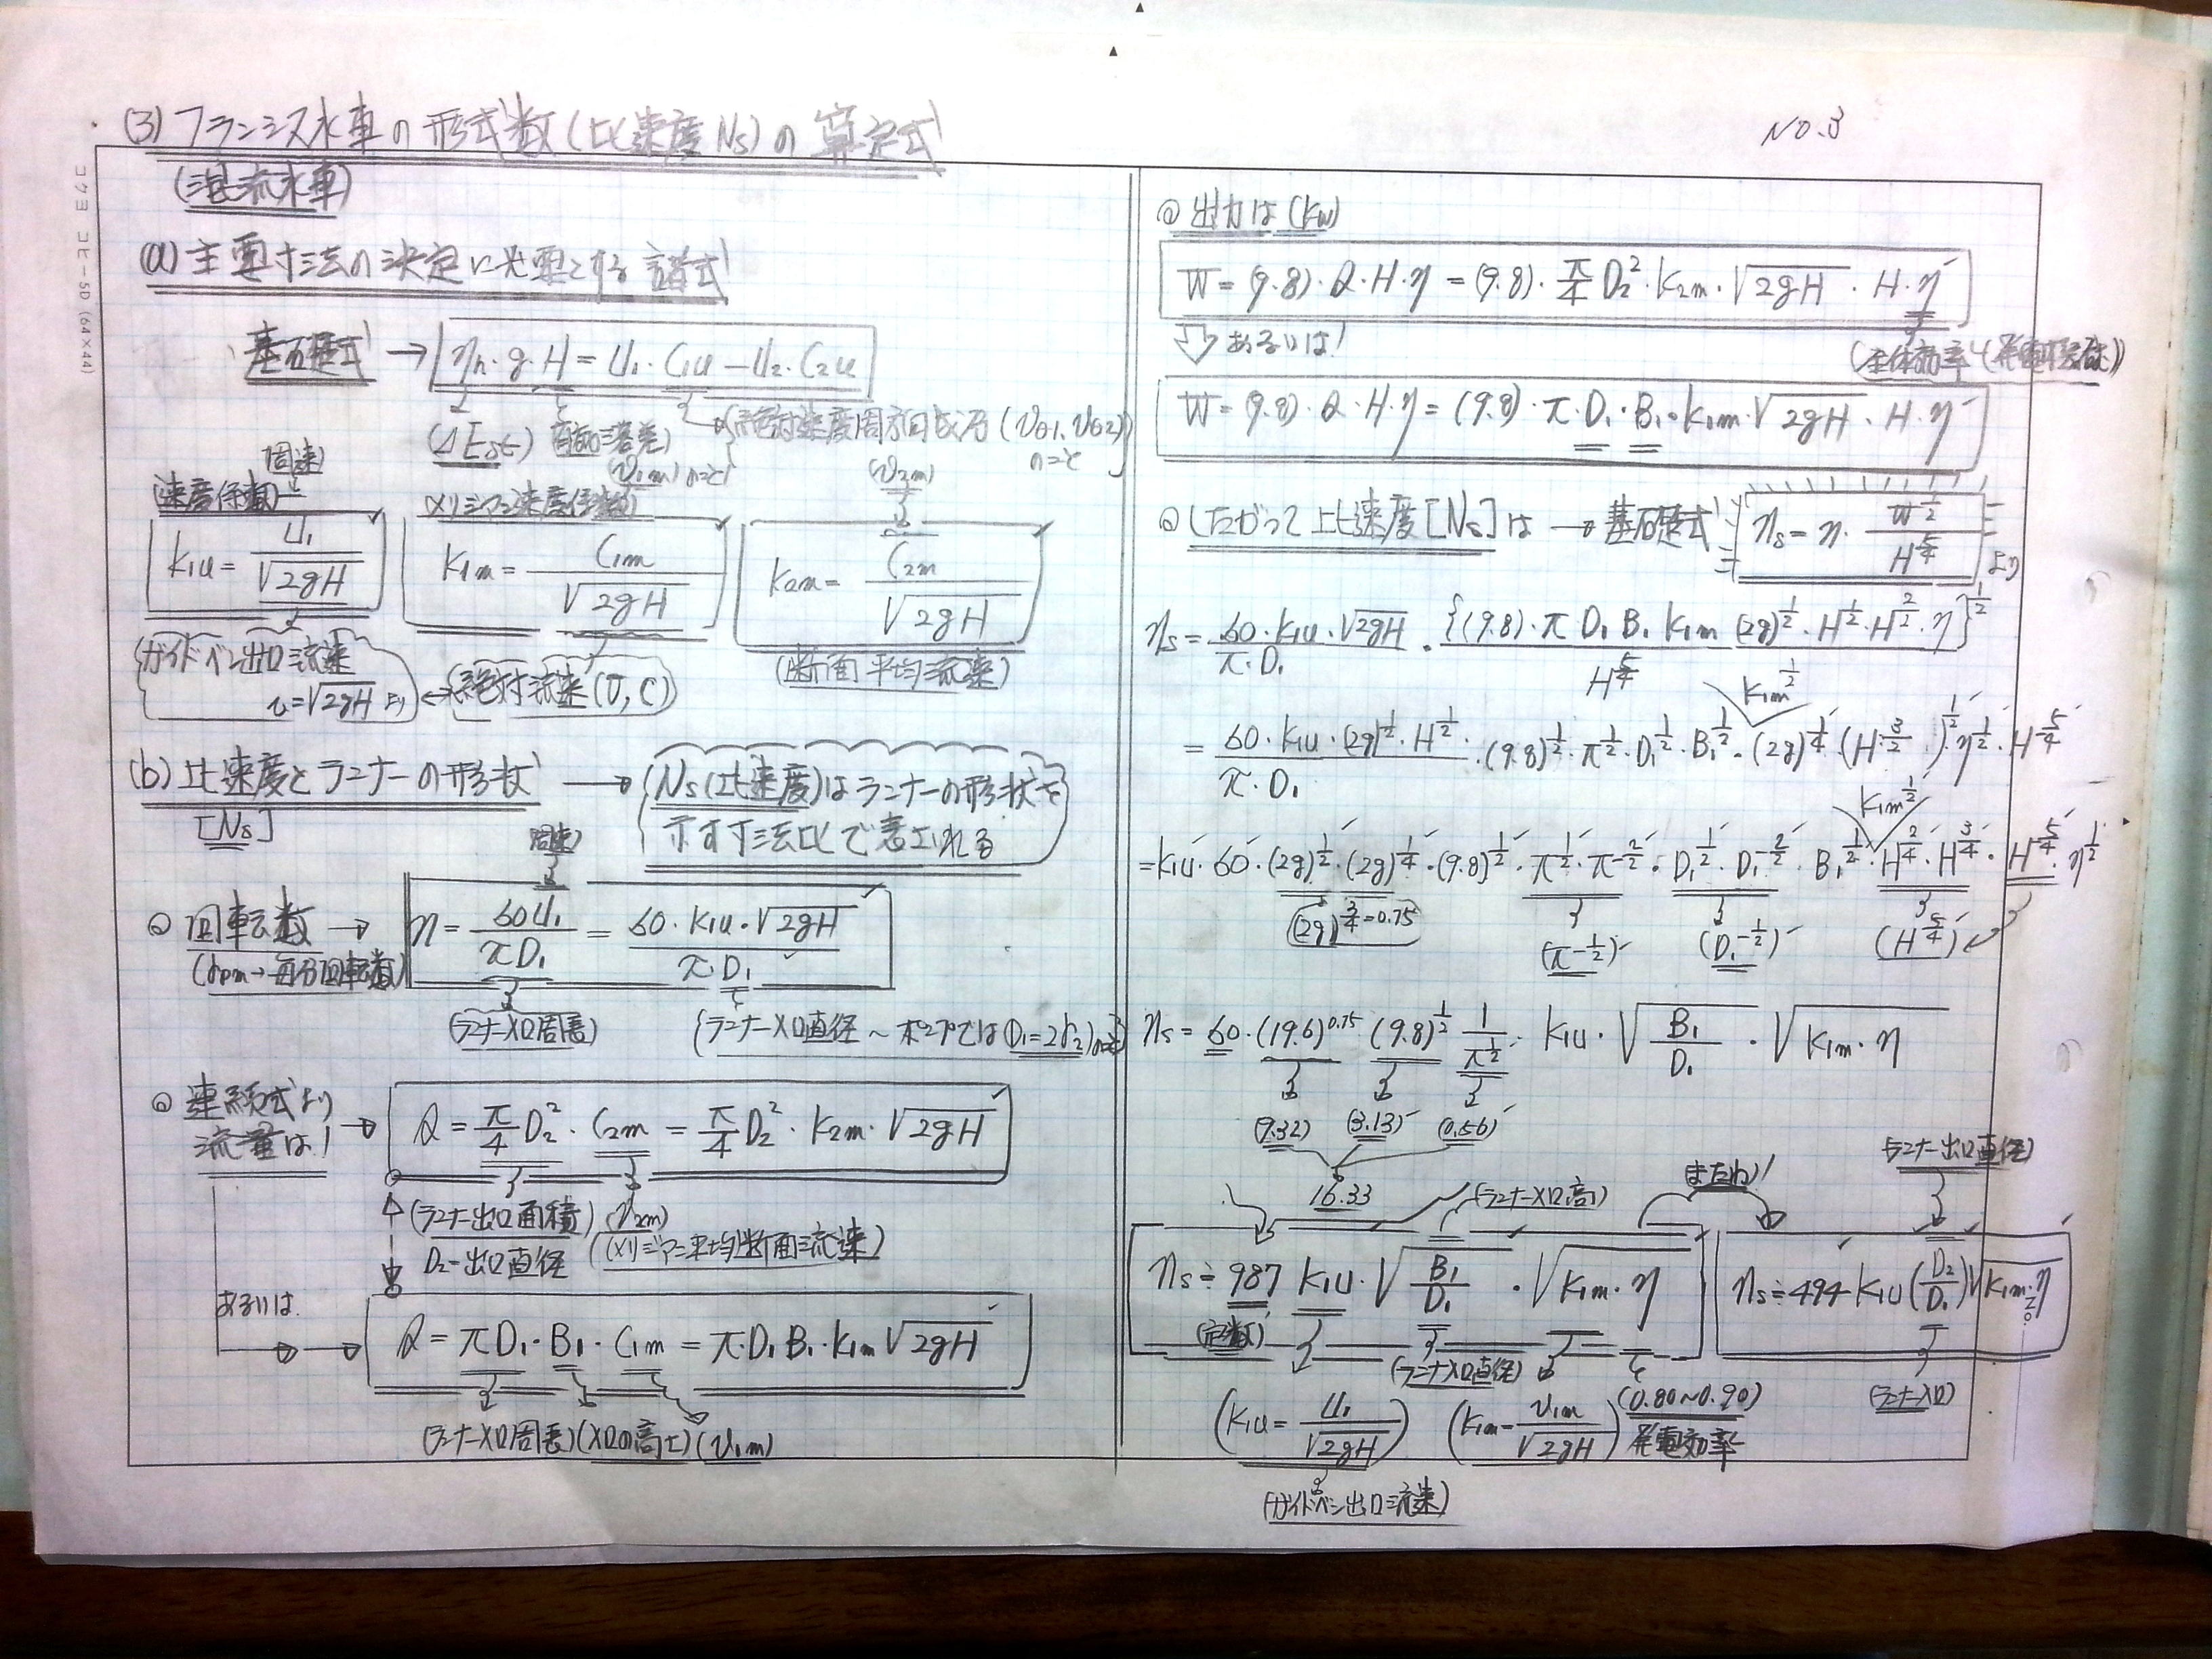 NO.3
(3) フランシス水車の形式数(比速度Ns)の算定式
(混流水車)
コクヨ コヒ-5D (64×44)
(a) 主要寸法の決定に必要とする諸式
基礎式 → ηh・g・H = U₁・C₁u − U₂・C₂u
(ΔEst) 有効落差 絶対速度周方向成分 (Vθ1, Vθ2) のこと
周速
(速度係数)
k₁u = U₁/√2gH
(V₁m)のこと
メリジアン速度係数
k₁m = C₁m/√2gH
(V₂m)
k₂m = C₂m/√2gH
(ガイドベン出口流速
v=√2gH より ← (絶対流速(V, C)
(断面平均流速)
(b) 比速度とランナーの形状 → (Ns(比速度)はランナーの形状を
[Ns] 示す寸法比で表される
周速
◎ 回転数 → n = 60U₁/πD₁ = 60・k₁u・√2gH/π・D₁
(rpm→毎分回転数)
(ランナー入口周長) (ランナー入口直径〜ポンプでは(D₁=2r₂)のこと
◎ 連続式より
流量は! → Q = π/4 D₂²・C₂m = π/4 D₂²・k₂m・√2gH
(ランナー出口面積) (V₂m)
D₂-出口直径 (メリジアン平均断面流速)
あるいは
→ Q = πD₁・B₁・C₁m = π・D₁B₁・k₁m√2gH
(ランナー入口周長)(入口の高さ)(V₁m)
◎ 出力は (kW)
W = (9.8)・Q・H・η = (9.8)・π/4 D₂²・k₂m・√2gH・H・η
あるいは!
(全体効率
W = (9.8)・Q・H・η = (9.8)・π・D₁・B₁・k₁m・√2gH・H・η
◎ したがって比速度[Ns]は → 基礎式 ns = n・W^½/H^5/4 より
ns = 60・k₁u・√2gH/π・D₁・{(9.8)・π D₁ B₁ k₁m (2g)^½・H^½・H^2/2・η}^½/H^5/4
k₁m^½
= 60・k₁u・(2g)^½・H^½/π・D₁・(9.8)^½・π^½・D₁^½・B₁^½・(2g)^¼・(H^3/2)^½・η^½・H^5/4
k₁m^½
= k₁u・60・(2g)^½・(2g)^¼・(9.8)^½・π^½・π^-2/2・D₁^½・D₁^-2/2・B₁^½・H^2/4・H^3/4・H^5/4・η^½
(2g)^3/4=0.75 (π^-½) (D₁^-½) (H^5/4)
ns = 60・(19.6)^0.75 (9.8)^½ 1/π^½・k₁u・√B₁/D₁・√k₁m・η
(9.32) (3.13) (0.56)
16.33
(ランナー入口高) (または!) (ランナー出口直径)
ns ≒ 987 k₁u・√B₁/D₁・√k₁m・η
ns ≒ 494 k₁u (D₂/D₁)√k₁m・η
(定数) (ランナー入口直径) (ランナー入口)
(k₁u = U₁/√2gH) (k₁m = V₁m/√2gH) (0.80〜0.90)
発電効率
(ガイドベン出口流速)